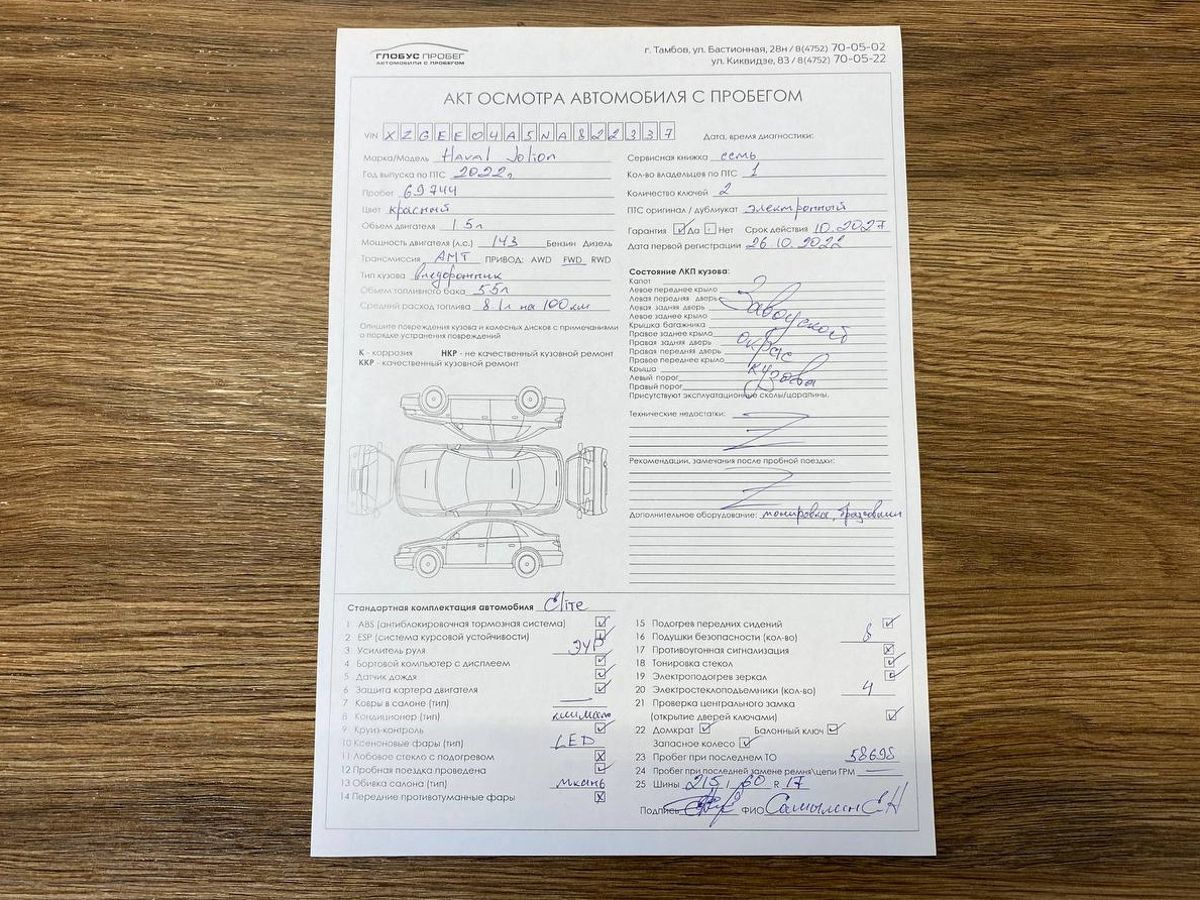 ГЛОБУС ПРОБЕГ
АВТОМОБИЛИ С ПРОБЕГОМ
г. Тамбов, ул. Бастионная, 28н / 8(4752) 70-05-02
ул. Киквидзе, 83 / 8(4752) 70-05-22
АКТ ОСМОТРА АВТОМОБИЛЯ С ПРОБЕГОМ
VIN XZGEE04A5NA822337
Дата, время диагностики:
Марка/Модель Haval Jolion
Год выпуска по ПТС 2022г.
Пробег 69744
Цвет красный
Объем двигателя 1.5л
Мощность двигателя (л.с.) 143 Бензин Дизель
Трансмиссия АМТ ПРИВОД: AWD FWD RWD
Тип кузова внедорожник
Объем топливного бака 55л
Средний расход топлива 8.1л на 100км
Сервисная книжка есть
Кол-во владельцев по ПТС 1
Количество ключей 2
ПТС оригинал / дубликат электронный
Гарантия Да Нет Срок действия 10.2027
Дата первой регистрации 26.10.2022
Опишите повреждения кузова и колесных дисков с примечаниями
о порядке устранения повреждений
К - коррозия НКР - не качественный кузовной ремонт
ККР - качественный кузовной ремонт
Состояние ЛКП кузова:
Капот
Левое переднее крыло
Левая передняя дверь
Левая задняя дверь
Левое заднее крыло
Крышка багажника
Правое заднее крыло
Правая задняя дверь
Правая передняя дверь
Правое переднее крыло
Крыша
Левый порог
Правый порог
Заводской
окрас
кузова
Присутствуют эксплуатационные сколы/царапины.
Технические недостатки:
Рекомендации, замечания после пробной поездки:
Дополнительное оборудование: тонировка,
Стандартная комплектация автомобиля Elite
1 ABS (антиблокировочная тормозная система)
2 ESP (система курсовой устойчивости)
3 Усилитель руля ЭУР
4 Бортовой компьютер с дисплеем
5 Датчик дождя
6 Защита картера двигателя
7 Ковры в салоне (тип)
8 Кондиционер (тип) климат
9 Круиз-контроль
10 Ксеноновые фары (тип) LED
11 Лобовое стекло с подогревом
12 Пробная поездка проведена
13 Обивка салона (тип) ткань
14 Передние противотуманные фары
15 Подогрев передних сидений
16 Подушки безопасности (кол-во)
17 Противоугонная сигнализация
18 Тонировка стекол
19 Электроподогрев зеркал
20 Электростеклоподъемники (кол-во) 4
21 Проверка центрального замка
(открытие дверей ключами)
22 Домкрат Балонный ключ
Запасное колесо
23 Пробег при последнем ТО 58698
24 Пробег при последней замене ремня\цепи ГРМ
25 Шины 215 / 60 R 17
Подпись ФИО Самылин С Н